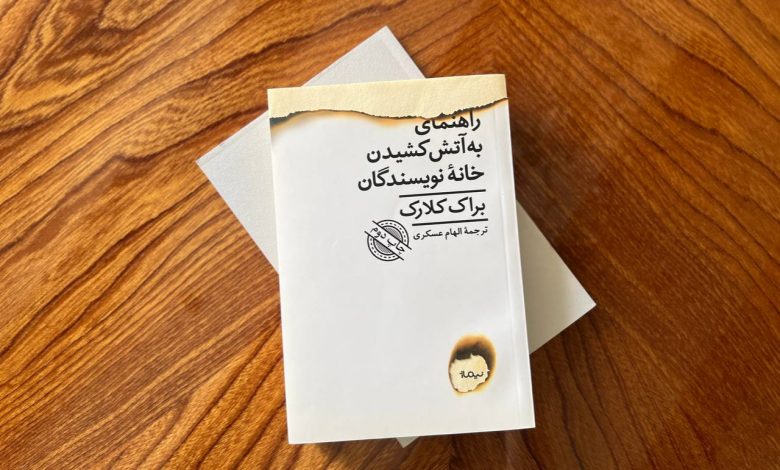 راهنمای
به آتش کشیدن
خانهٔ نویسندگان
براک کلارک
ترجمهٔ الهام عسکری
چاپ دوم
نیماژ